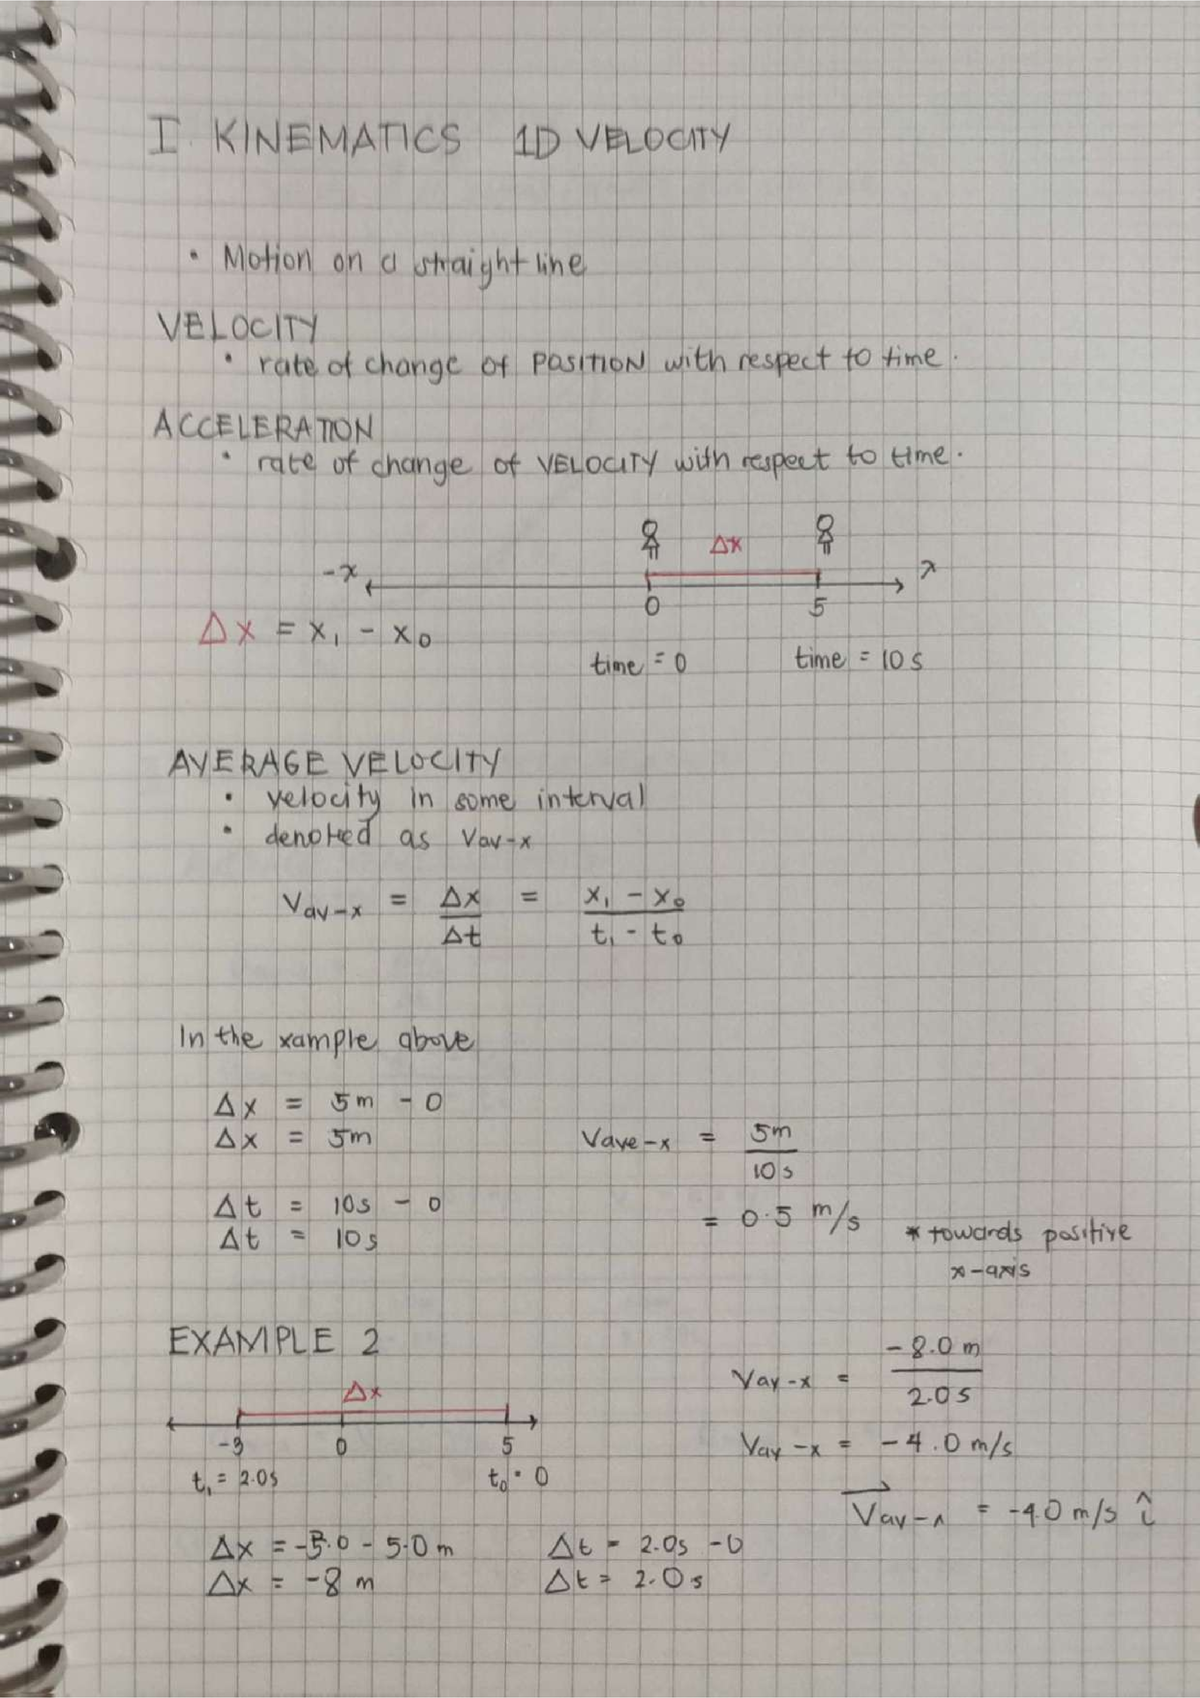 I. KINEMATICS 1D VELOCITY
• Motion on a straight line
VELOCITY
• rate of change of POSITION with respect to time.
ACCELERATION
• rate of change of VELOCITY with respect to time.
Δx
-x x
0 5
Δx = x₁ - x₀
time = 0 time = 10 s
AVERAGE VELOCITY
• velocity in some interval
• denoted as Vav-x
Vav-x = Δx/Δt = (x₁ - x₀)/(t₁ - t₀)
In the xample above
Δx = 5m - 0
Δx = 5m
Vave-x = 5m/10s
Δt = 10s - 0
Δt = 10s
= 0.5 m/s * towards positive
x-axis
EXAMPLE 2
Δx
-3 0 5
t₁ = 2.0s t₀ = 0
Vav-x = -8.0 m/2.0s
Vav-x = -4.0 m/s
V⃗av-x = -4.0 m/s î
Δx = -3.0 - 5.0 m Δt = 2.0s - 0
Δx = -8 m Δt = 2.0 s